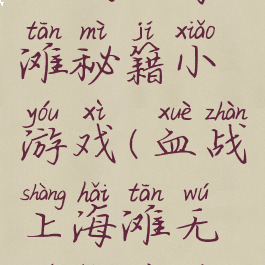 tān mì jí xiǎo
滩秘籍小
yóu xì xuè zhàn
游戏(血战
shàng hǎi tān wú
上海滩无